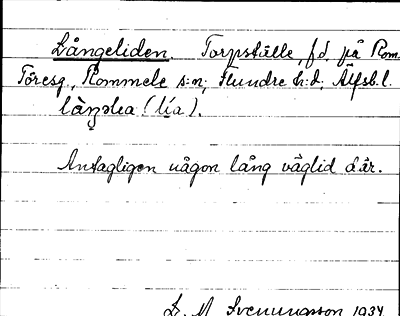 Långeliden. Torpställe, f.d. på Rom-
Töresg., Rommele s:n; Flundre h:d; Älfsb. l.
(lía).
Antagligen någon lång väglid där.
Svenungsson 1934